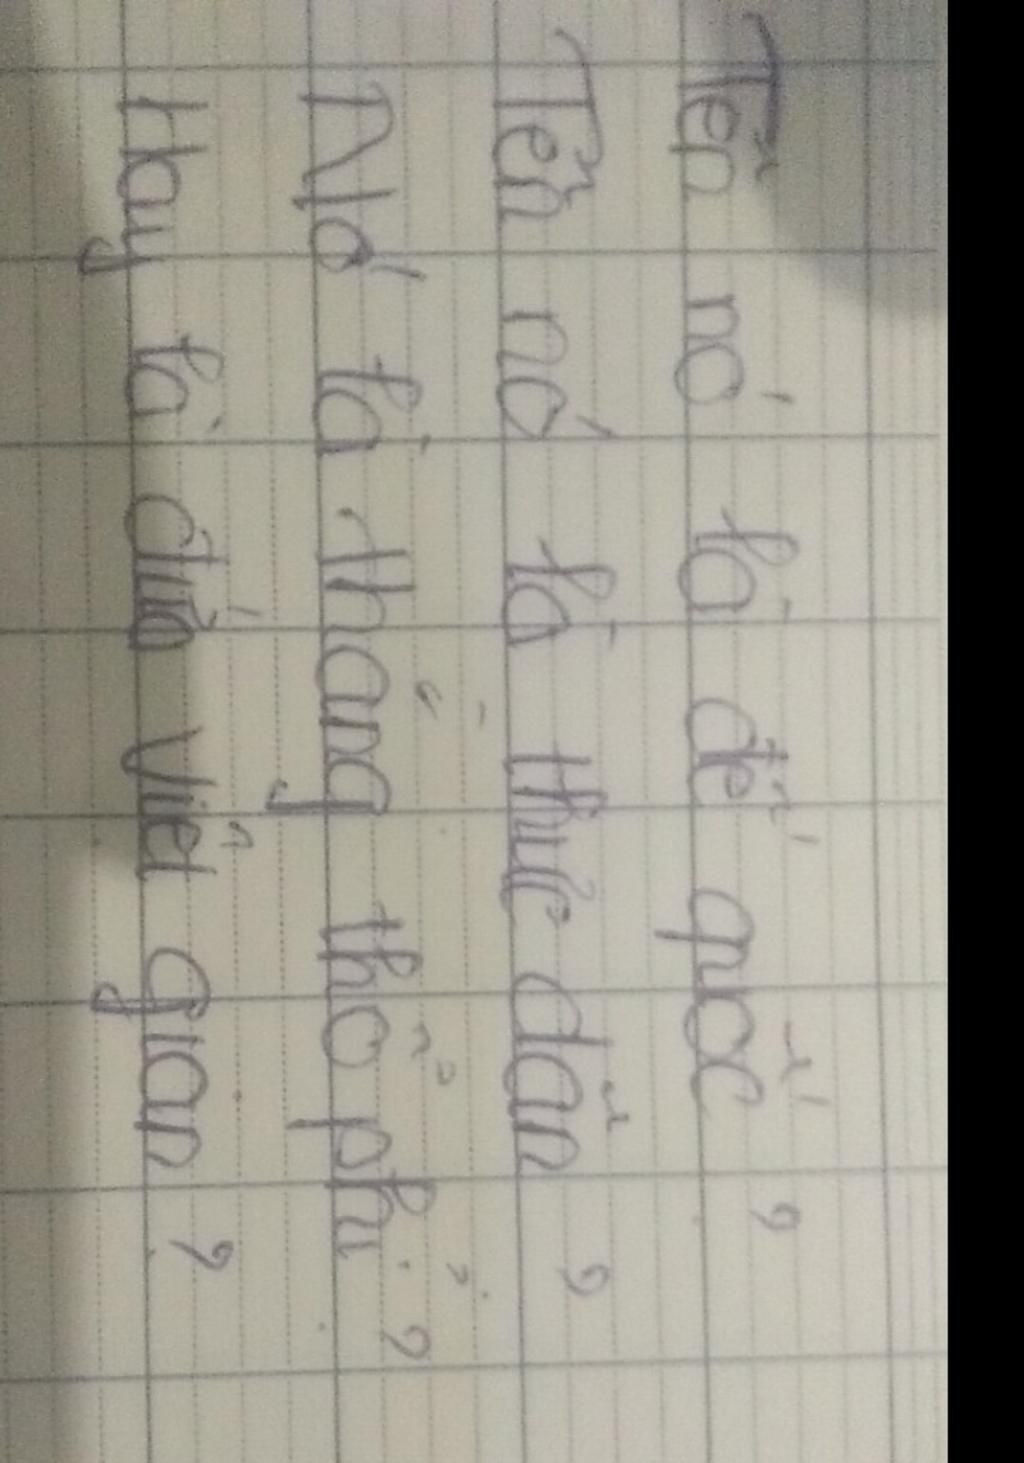 Tên nó là đế quốc?
Tên nó là thực dân?
Nó là thằng thổ phỉ?
Hay là đứa Việt gian?